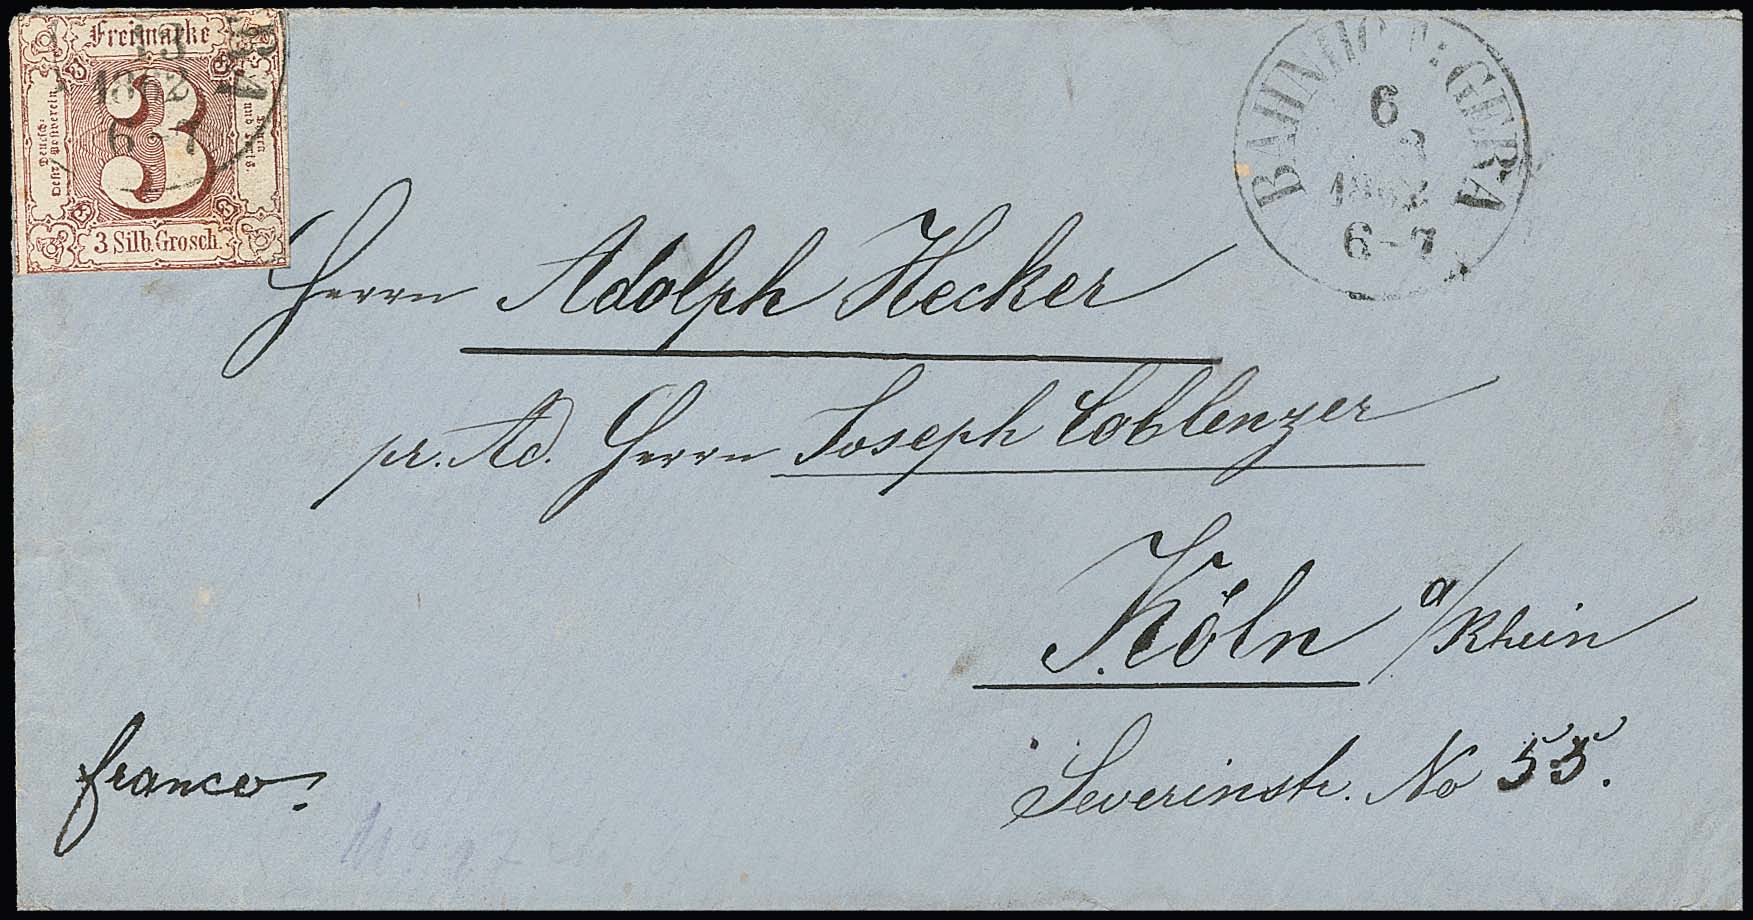 Freimarke
13
1862
6-7
RA
3
Deutsch-
Oestr. Postverein
Thurn
und Taxis.
3 Silb. Grosch.
BAHNHOF: GERA
6
1862
6-7
Herrn Adolph Hecker
pr. Ad. Herrn Joseph Coblenzer
Köln a/Rhein
Severinstr. No 55.
franco.